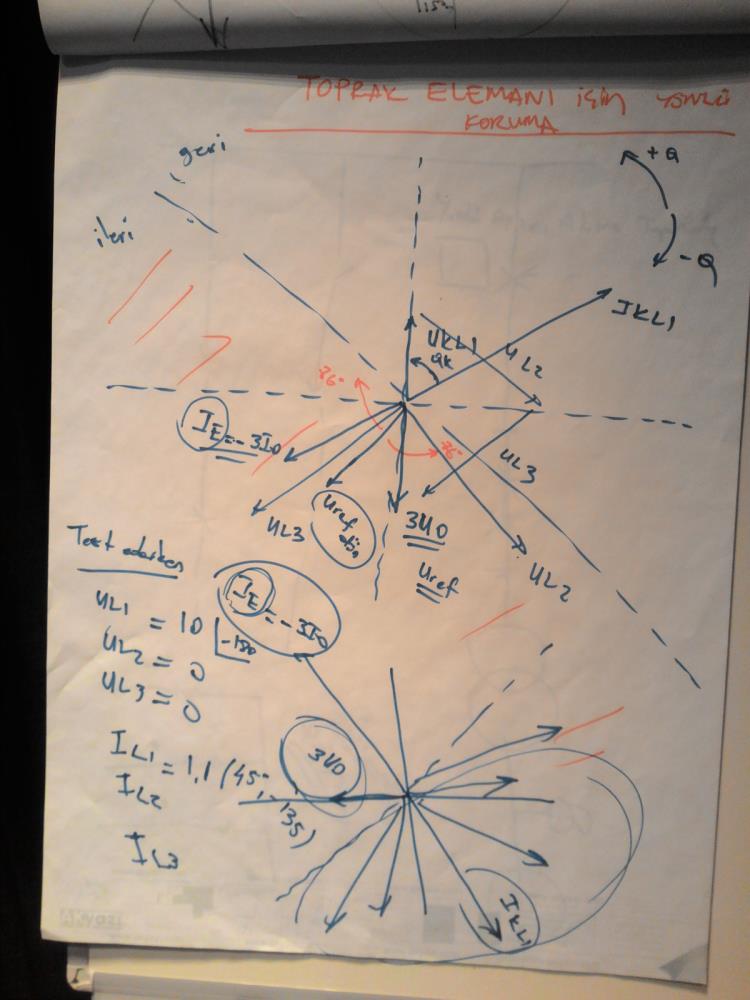 TOPRAK ELEMANI için yönlü
KORUMA
geri
ileri
+Q
-Q
IKL1
UKL1
φK
UL2
76°
76°
IE=-3I0
UL3
UL3
Uref
dön
3U0
Uref
UL2
Test ederken
UL1 = 10 -180
UL2 = 0
UL3 = 0
IE=-3I0
IL1 = 1,1 (45°, -135)
IL2
IL3
3U0
IKL1